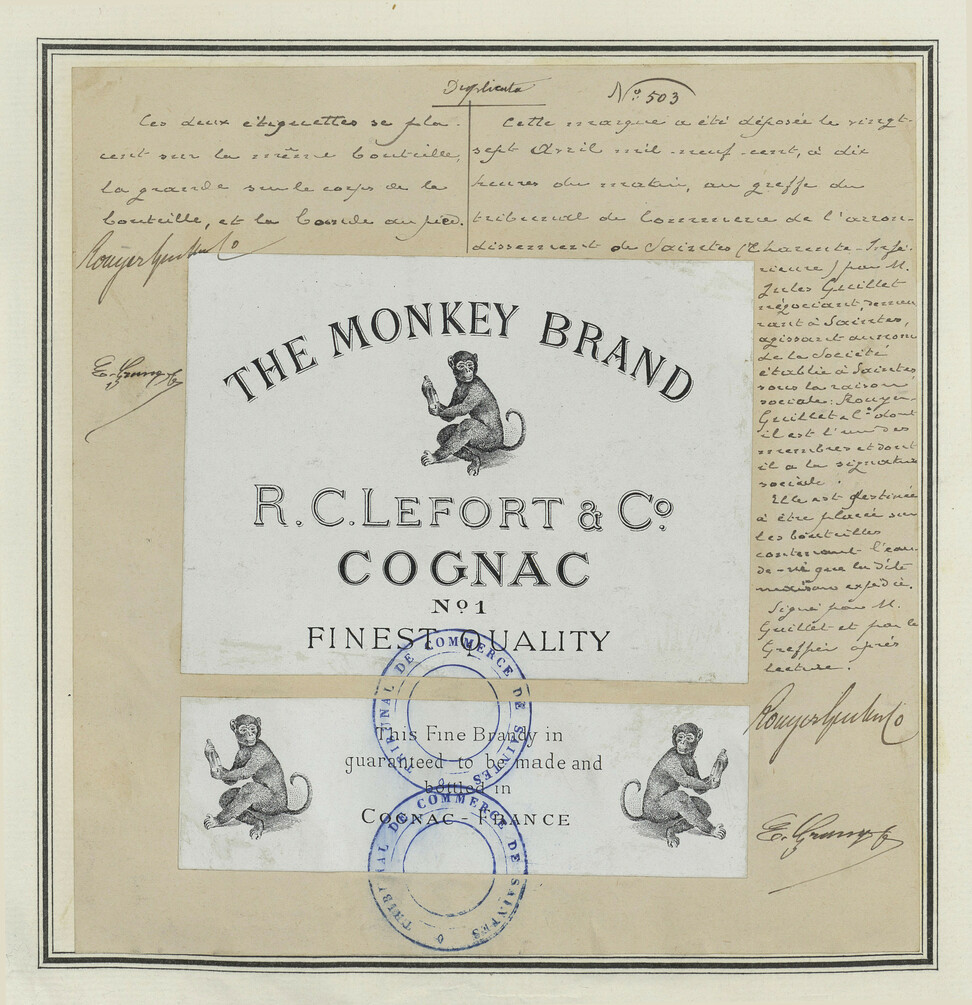 Duplicata
Nº 503
Ces deux étiquettes se pla-
cent sur la même bouteille,
la grande sur le corps de la
bouteille, et la bande au pied.
Cette marque a été déposée le vingt-
sept Avril mil neuf cent, à dix
heures du matin, au greffe du
tribunal de Commerce de l'arron-
dissement de Saintes (Charente-Infé-
rieure) par M.
Jules Guillet
négociant, demeu-
rant à Saintes,
agissant au nom
de la Société
établie à Saintes
sous la raison
sociale: Rouyer
Guillet & Cº dont
il est l'un des
membres et dont
il a la signature
sociale.
Elle est destinée
à être placée sur
les bouteilles
contenant l'eau-
de-vie que la dite
maison expédie.
Signé par M.
Guillet et par le
Greffier après
lecture.
Rouyer Guillet & Co
Rouyer Guillet & Co
THE MONKEY BRAND
R. C. LEFORT & Cº
COGNAC
Nº 1
FINEST QUALITY
This Fine Brandy in
guaranteed to be made and
bottled in
COGNAC - FRANCE
TRIBUNAL DE COMMERCE DE SAINTES
TRIBUNAL DE COMMERCE DE SAINTES